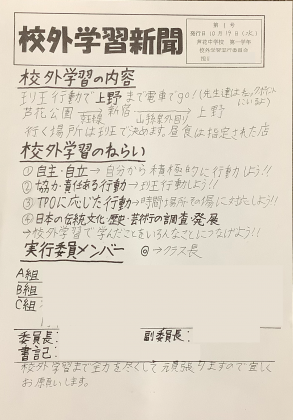 校外学習新聞
第1号
発行日10月19日(水)
芦花中学校 第一学年
校外学習実行委員会
校外学習の内容
班別行動で上野まで電車でgo!(先生達はチェックポイントにいるよ)
芦花公園→新宿→上野
京王線 山手線外回り
行く場所は班で決めます。昼食は指定された店
校外学習のねらい
①自主・自立→自分から積極的に行動しよう!!
②協力・責任ある行動→班行動しよう!!
③TPOに応じた行動→時間と場所とその場に対応しよう!!
④日本の伝統文化・歴史・芸術の調査・発展
→校外学習で学んだことをいろんなことにつなげよう!!
実行委員メンバー @→クラス長
A組
B組
C組
委員長: 副委員長:
書記:
校外学習まで全力を尽くして頑張りますので宜しく
お願いします。